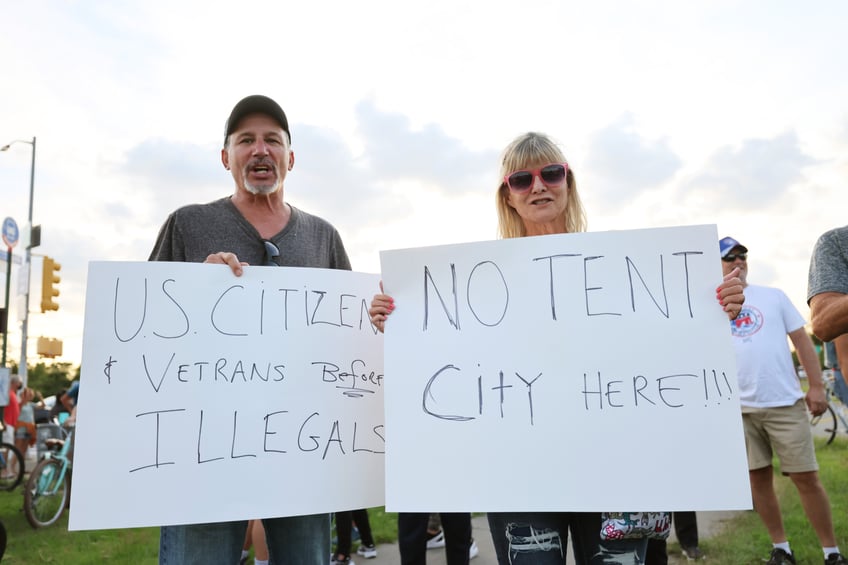 U.S. CITIZEN
& VETRANS Before
ILLEGALS
NO TENT
CITY HERE!!!